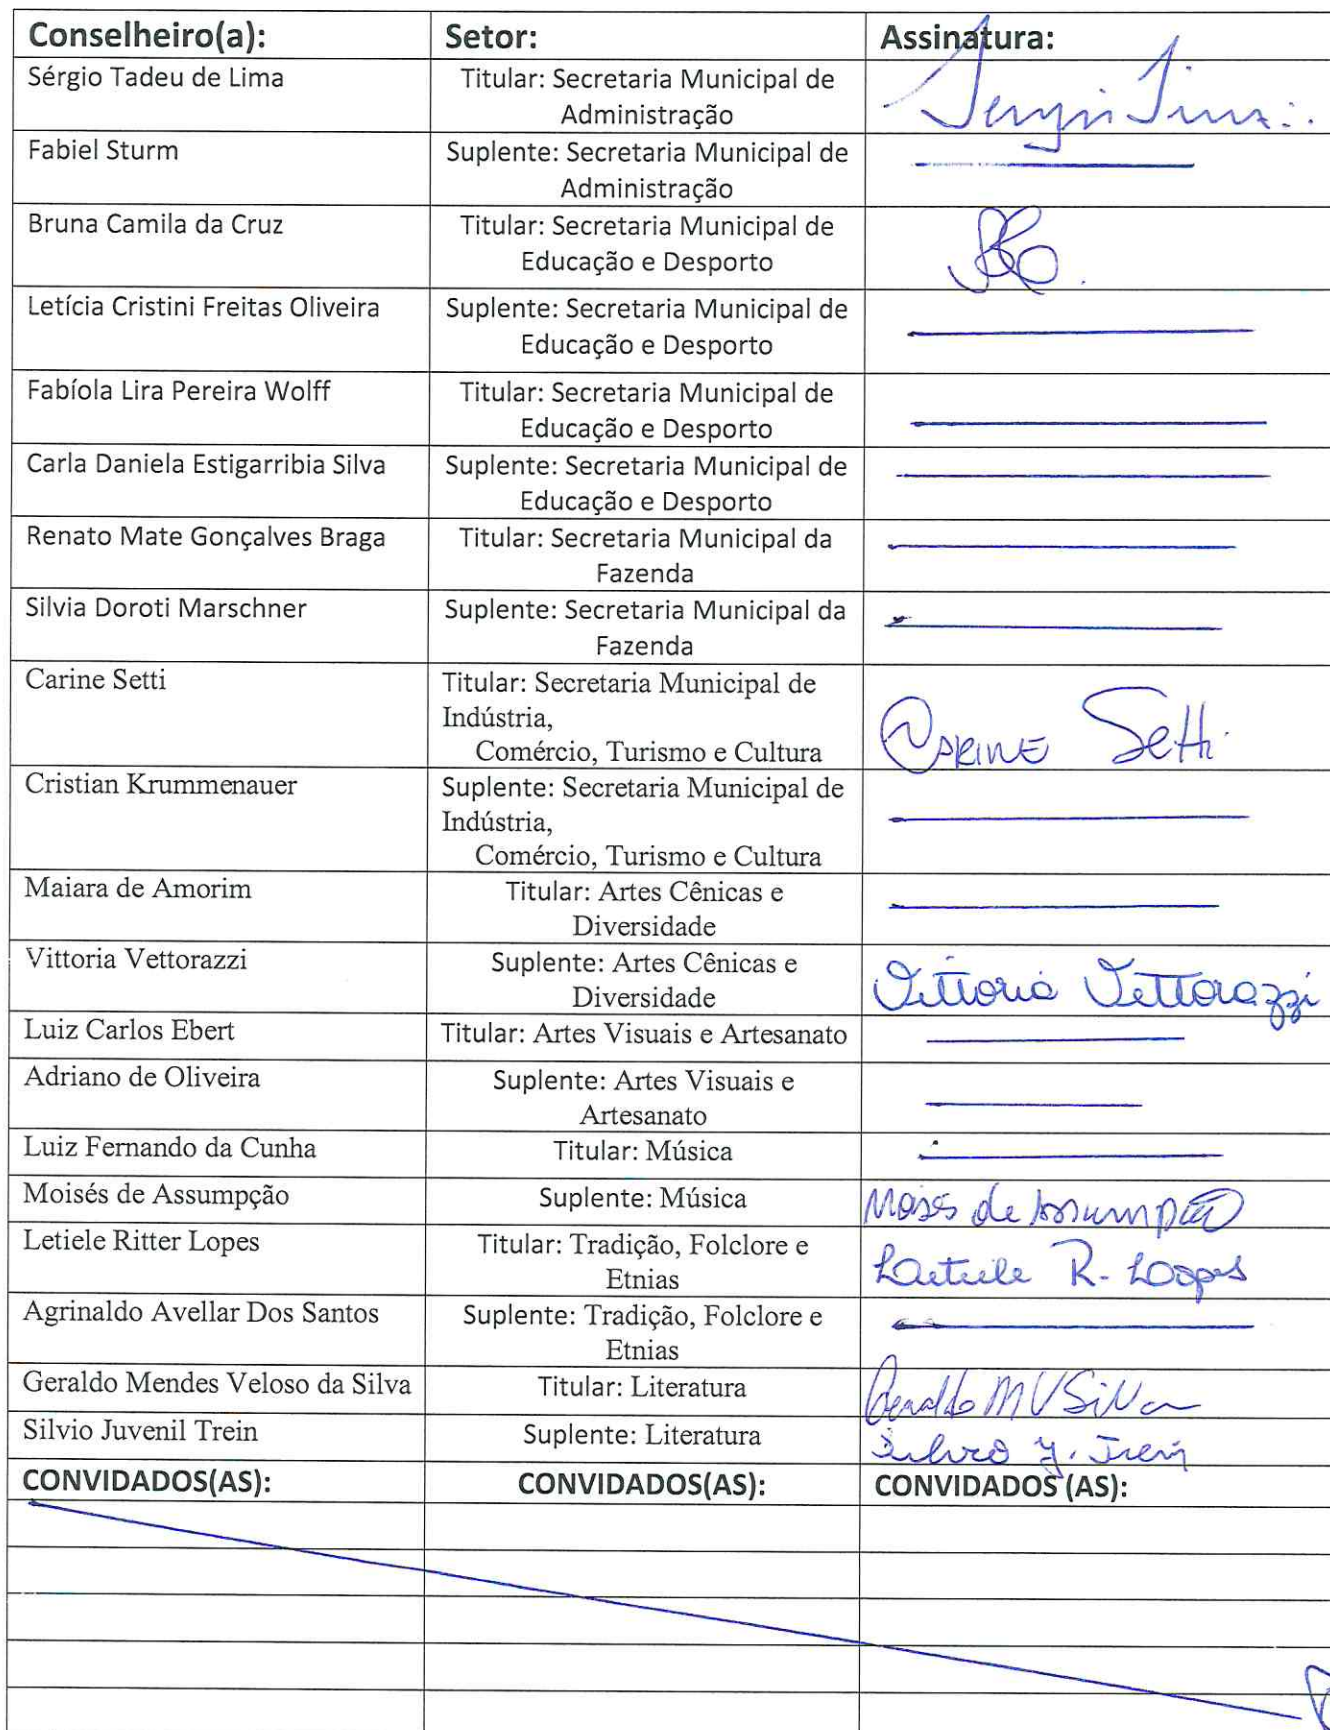 Conselheiro(a): Setor: Assinatura:
Sérgio Tadeu de Lima Titular: Secretaria Municipal de
Administração
Fabiel Sturm Suplente: Secretaria Municipal de
Administração
Bruna Camila da Cruz Titular: Secretaria Municipal de
Educação e Desporto
Letícia Cristini Freitas Oliveira Suplente: Secretaria Municipal de
Educação e Desporto
Fabíola Lira Pereira Wolff Titular: Secretaria Municipal de
Educação e Desporto
Carla Daniela Estigarribia Silva Suplente: Secretaria Municipal de
Educação e Desporto
Renato Mate Gonçalves Braga Titular: Secretaria Municipal da
Fazenda
Silvia Doroti Marschner Suplente: Secretaria Municipal da
Fazenda
Carine Setti Titular: Secretaria Municipal de
Indústria,
Comércio, Turismo e Cultura Carine Setti
Cristian Krummenauer Suplente: Secretaria Municipal de
Indústria,
Comércio, Turismo e Cultura
Maiara de Amorim Titular: Artes Cênicas e
Diversidade
Vittoria Vettorazzi Suplente: Artes Cênicas e
Diversidade Vittoria Vettorazzi
Luiz Carlos Ebert Titular: Artes Visuais e Artesanato
Adriano de Oliveira Suplente: Artes Visuais e
Artesanato
Luiz Fernando da Cunha Titular: Música
Moisés de Assumpção Suplente: Música Moisés de Assumpção
Letiele Ritter Lopes Titular: Tradição, Folclore e
Etnias R. Lopes
Agrinaldo Avellar Dos Santos Suplente: Tradição, Folclore e
Etnias
Geraldo Mendes Veloso da Silva Titular: Literatura Geraldo M V Silva
Silvio Juvenil Trein Suplente: Literatura Silvio J. Trein
CONVIDADOS(AS): CONVIDADOS(AS): CONVIDADOS (AS):